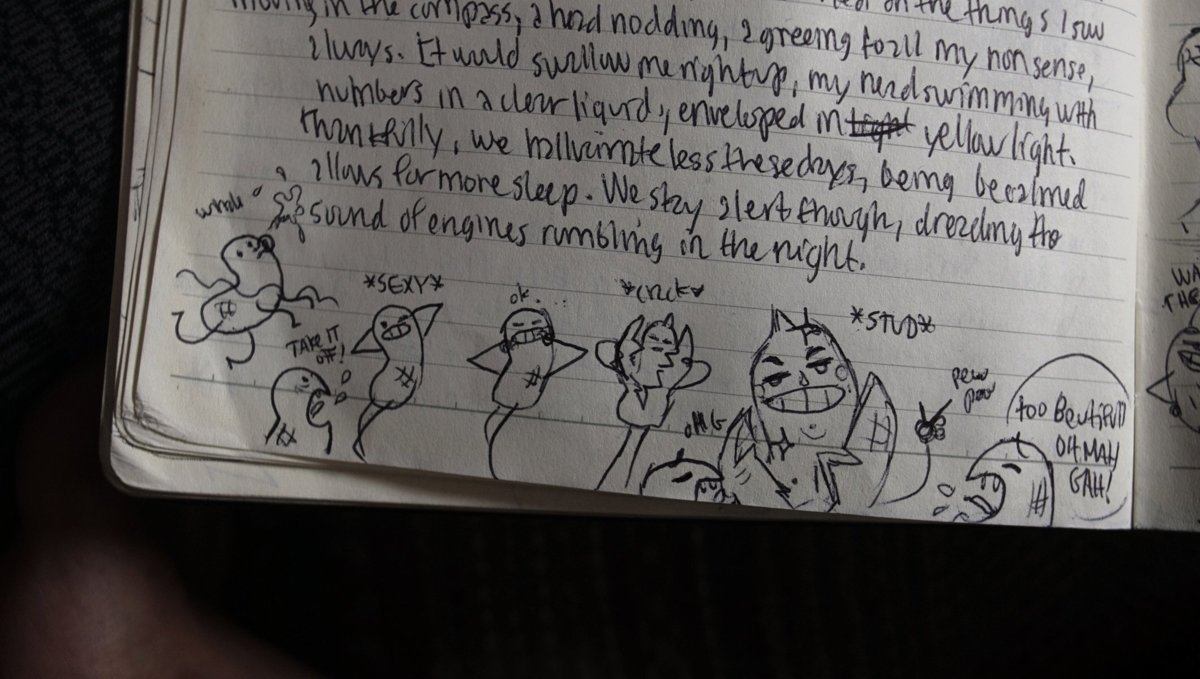 moving in the compass, a head nodding, agreeing to all my nonsense,
on the things I saw
always. It would swallow me right up, my head swimming with
numbers in a clear liquid, enveloped in yellow light.
Thankfully, we hallucinate less these days, being becalmed
allows for more sleep. We stay alert though, dreading the
sound of engines rumbling in the night.
*SEXY*
ok....
*CRCK*
*STUD*
TAKE IT
OFF!
OMG
pew
pew
too BEUTIFUL
OH MAH
GAH!
WA
THE